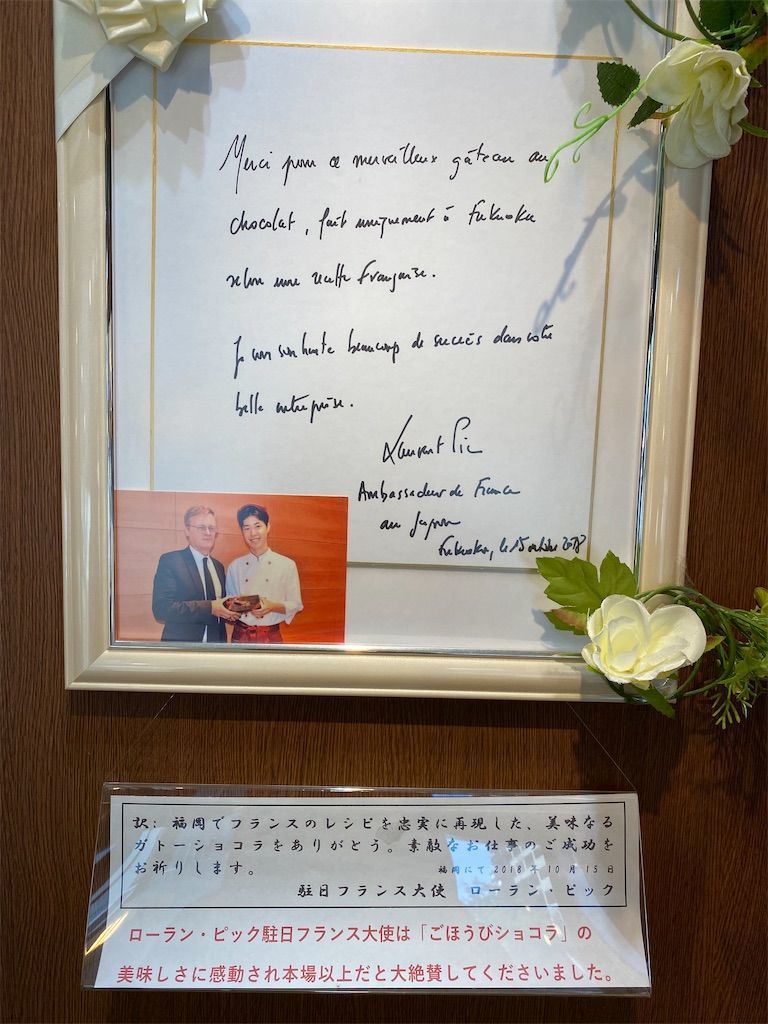 Merci pour ce merveilleux gâteau au
chocolat, fait uniquement à Fukuoka
selon une recette Française.
Je vous souhaite beaucoup de succès dans votre
belle entreprise.
Laurent Pic
Ambassadeur de France
au Japon
Fukuoka, le 15 octobre 2018
訳: 福岡でフランスのレシピを忠実に再現した、美味なる
ガトーショコラをありがとう。素敵なお仕事のご成功を
お祈りします。 福岡にて 2018 年 10 月 15 日
駐日フランス大使 ローラン・ピック
ローラン・ピック駐日フランス大使は「ごほうびショコラ」の
美味しさに感動され本場以上だと大絶賛してくださいました。